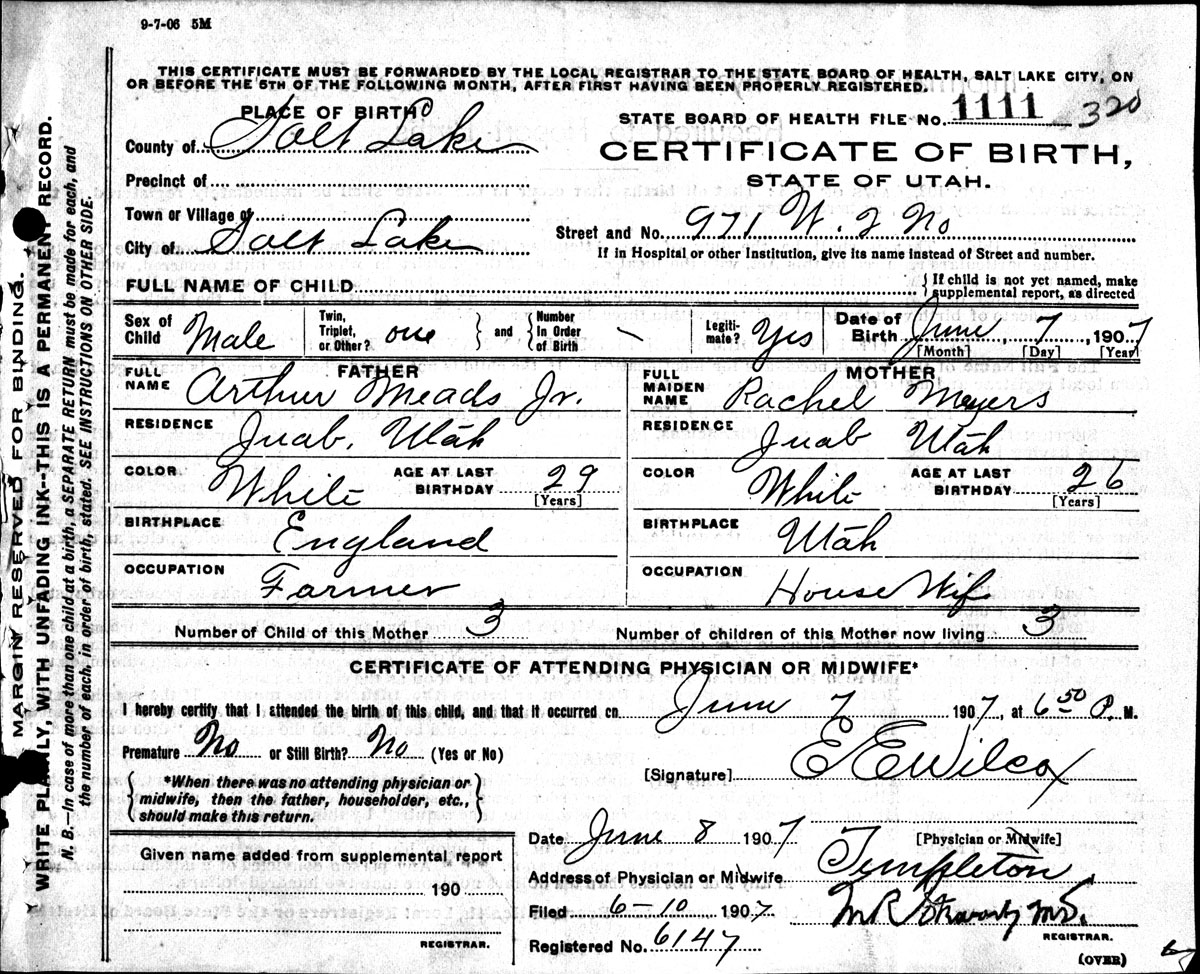 9-7-06 5M
THIS CERTIFICATE MUST BE FORWARDED BY THE LOCAL REGISTRAR TO THE STATE BOARD OF HEALTH, SALT LAKE CITY, ON
OR BEFORE THE 5TH OF THE FOLLOWING MONTH, AFTER FIRST HAVING BEEN PROPERLY REGISTERED.
PLACE OF BIRTH
STATE BOARD OF HEALTH FILE No. 1111 320
County of Salt Lake
CERTIFICATE OF BIRTH,
STATE OF UTAH.
Precinct of
Town or Village of
City of Salt Lake
Street and No. 971 W. 2 No
If in Hospital or other Institution, give its name instead of Street and number.
FULL NAME OF CHILD
If child is not yet named, make
supplemental report, as directed
Sex of Child Male
Twin, Triplet, or Other? one
and Number in Order of Birth
Legiti-mate? Yes
Date of Birth June 7 1907
[Month] [Day] [Year]
FATHER
FULL NAME Arthur Meads Jr.
RESIDENCE Juab, Utah
COLOR White AGE AT LAST BIRTHDAY 29
[Years]
BIRTHPLACE England
OCCUPATION Farmer
MOTHER
FULL MAIDEN NAME Rachel Meyers
RESIDENCE Juab Utah
COLOR White AGE AT LAST BIRTHDAY 26
[Years]
BIRTHPLACE Utah
OCCUPATION House Wife
Number of Child of this Mother 3 Number of children of this Mother now living 3
CERTIFICATE OF ATTENDING PHYSICIAN OR MIDWIFE*
I hereby certify that I attended the birth of this child, and that it occurred on June 7 1907, at 6 50 P. M.
Premature No or Still Birth? No (Yes or No)
[Signature] E E Wilcox
*When there was no attending physician or
midwife, then the father, householder, etc.,
should make this return.
Date June 8 1907 [Physician or Midwife]
Given name added from supplemental report
190
REGISTRAR.
Address of Physician or Midwife Templeton
Filed 6-10 1907
Registered No. 6147
REGISTRAR.
(OVER)
MARGIN RESERVED FOR BINDING.
WRITE PLAINLY, WITH UNFADING INK--THIS IS A PERMANENT RECORD.
N. B.—In case of more than one child at a birth, a SEPARATE RETURN must be made for each, and
the number of each, in order of birth, stated. SEE INSTRUCTIONS ON OTHER SIDE.